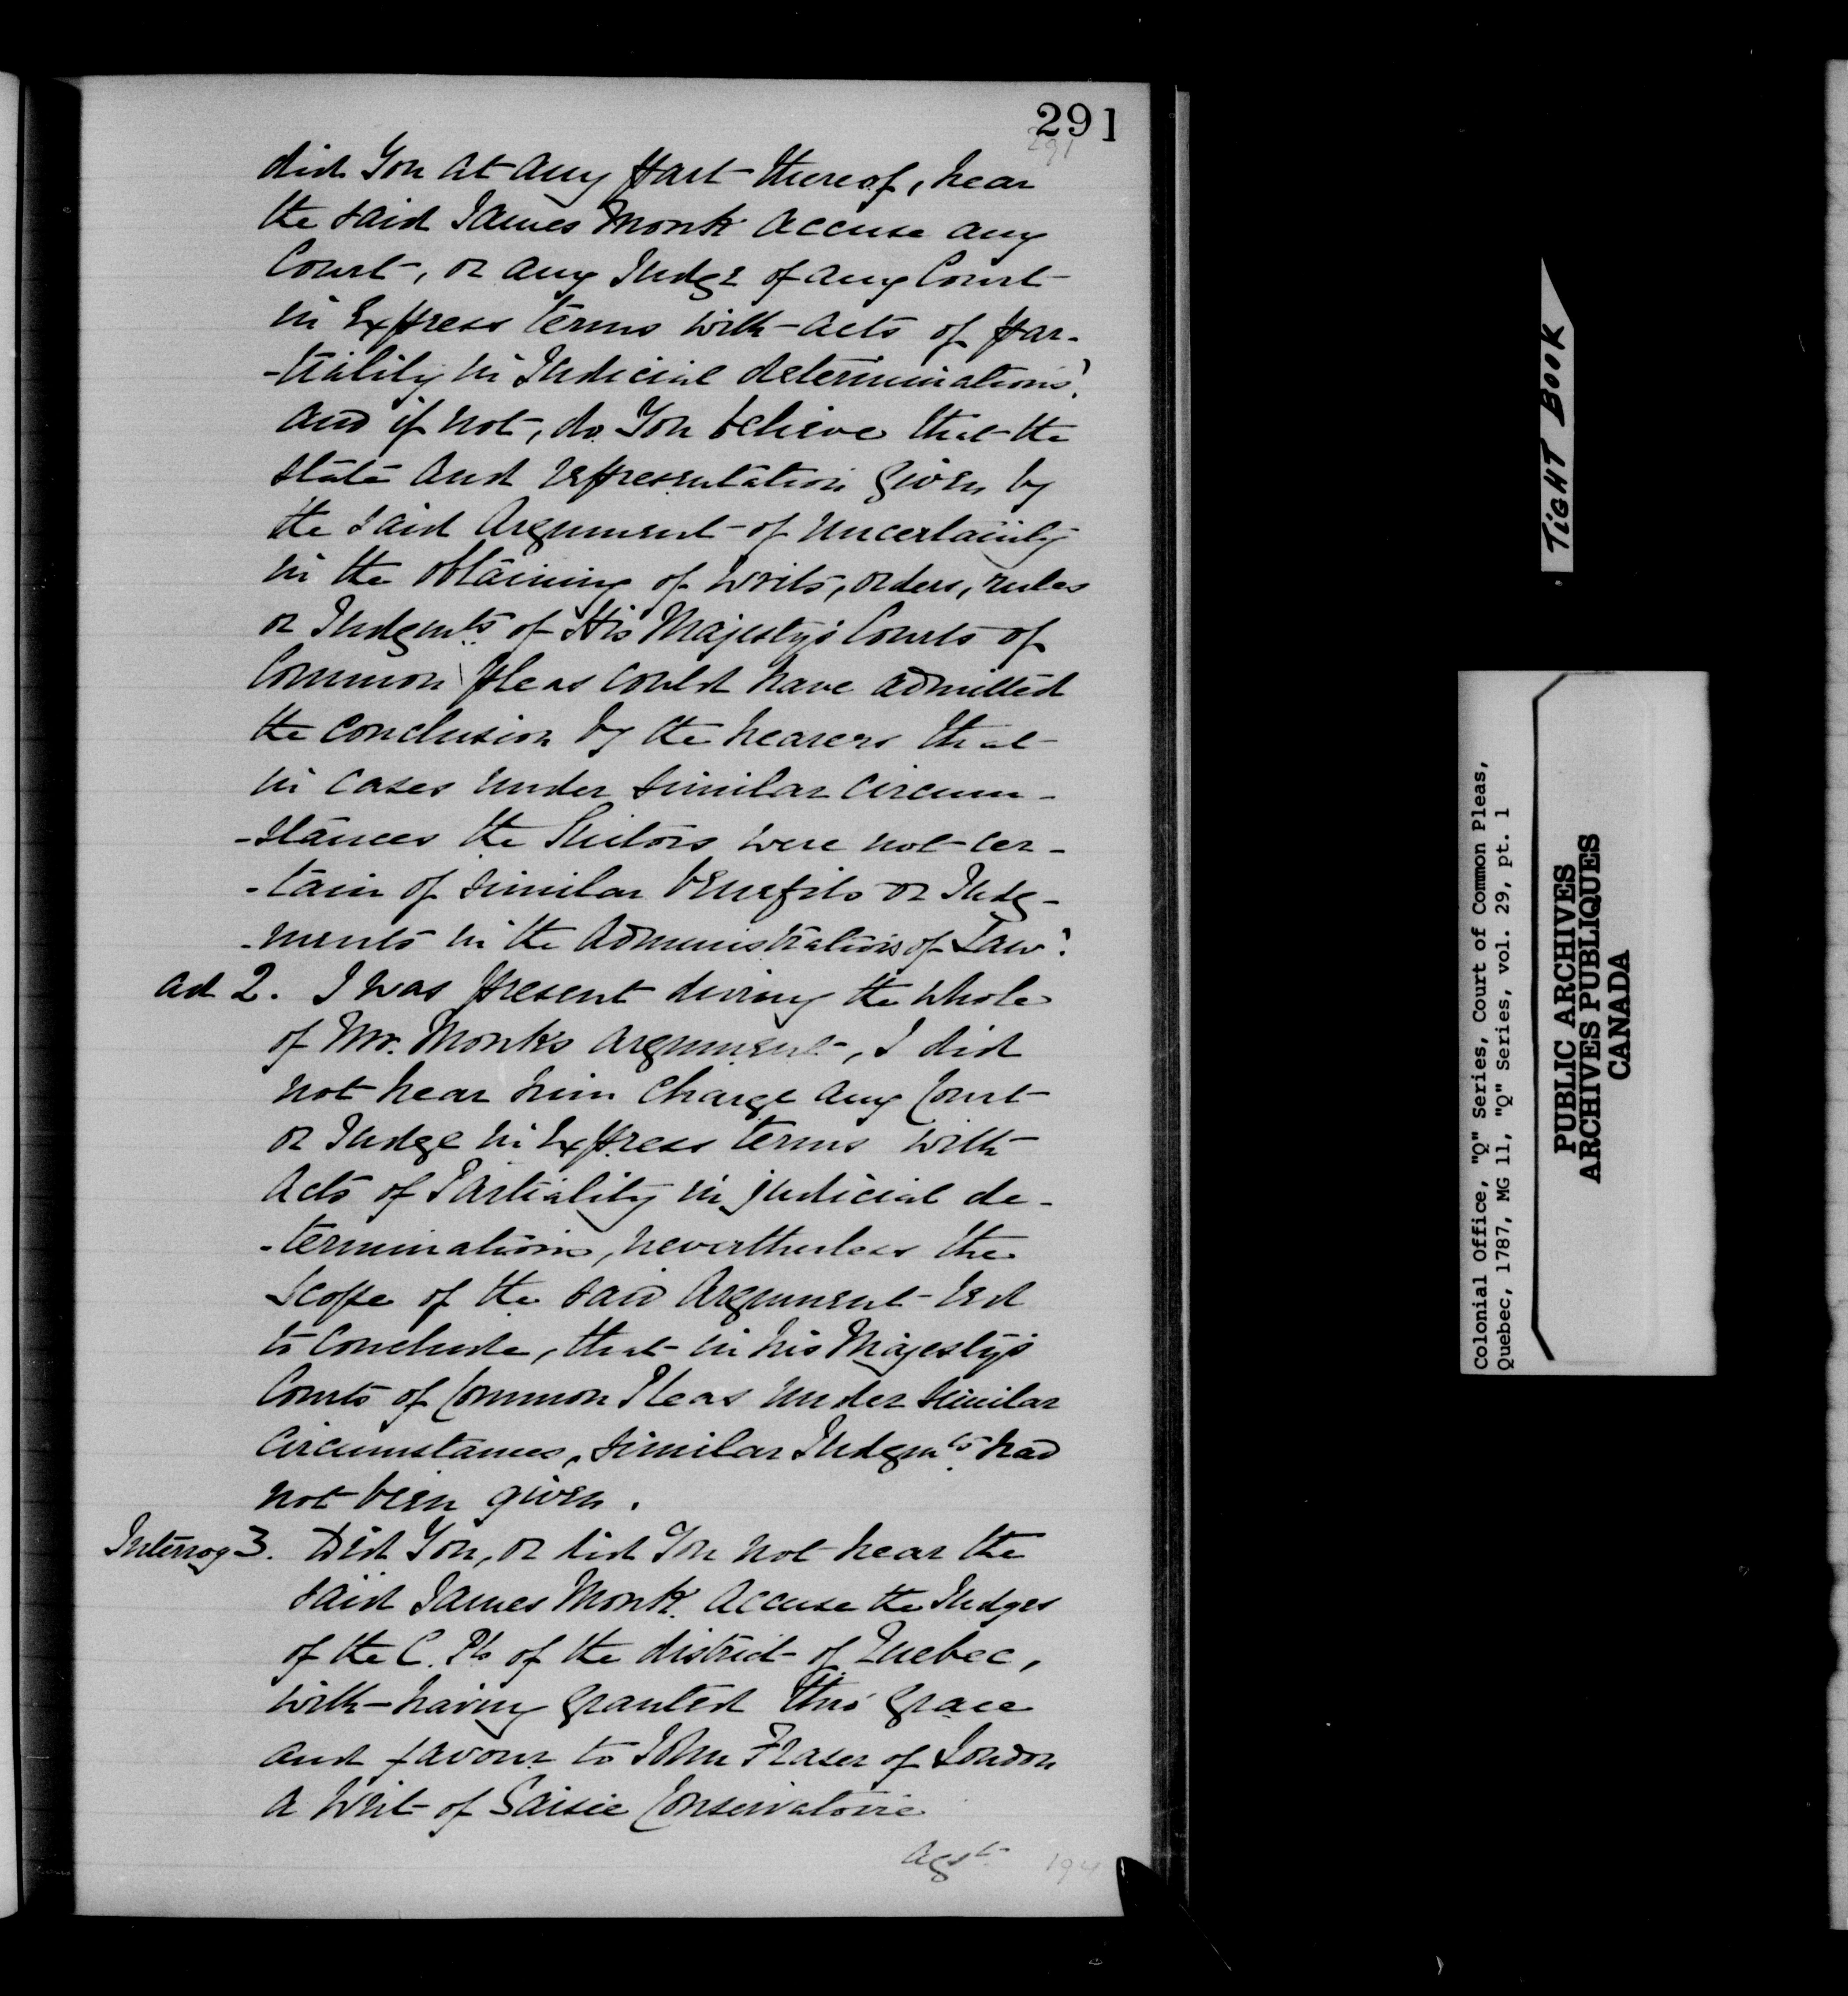 291
291
did You at any part thereof, hear
the said James Monk accuse any
Court, or any Judge of any Court
in Express terms with acts of par-
-tiality in Judicial determinations?
and if not, do You believe that the
state and representation given by
the said Argument of uncertainty
in the obtaining of writs, orders, rules
or Judgmts of His Majesty's Courts of
Common pleas could have admitted
the conclusion by the hearers that
in cases under similar circum-
-stances the Suitors were not cer-
-tain of similar benefits or Judg-
-ments in the Administration of Law?
ad 2. I was present during the whole
of Mr. Monk's argument, I did
not hear him Charge any Court
or Judge in Express terms with
Acts of Partiality in judicial de-
-terminations, nevertheless the
scope of the said Argument led
to conclude, that in his Majesty's
Courts of Common Pleas under similar
Circumstances, similar Judgmts had
not been given.
Interrog 3. Did You, or did You not hear the
said James Monk accuse the Judges
of the C. Pls of the district of Quebec,
with having granted thro' grace
and favour to John Fraser of London
a Writ of Saisie Conservatoire
agst
194
TIGHT BOOK
Colonial Office, "Q" Series, Court of Common Pleas,
Quebec, 1787, MG 11, "Q" Series, vol. 29, pt. 1
PUBLIC ARCHIVES
ARCHIVES PUBLIQUES
CANADA